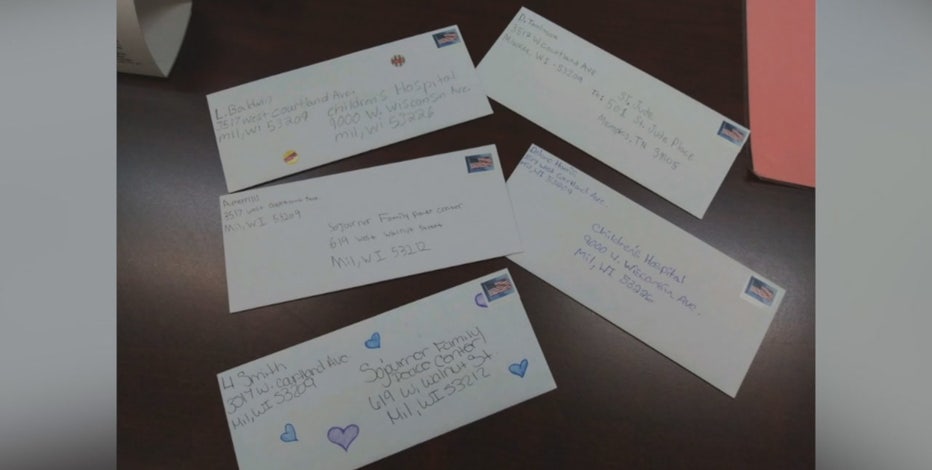 L. Battats
3517 West Courtland Ave.
Mil, WI 53209
Children's Hospital
9000 W. Wisconsin Ave.
Mil, WI 53226
3517 W Courtland Ave
WI - 53209
St. Jude
To: 501 St. Jude Place
Memphis, TN 38105
3517 West Courtland Ave
Mil, WI 53209
Sojourner Family Peace Center
619 West Walnut Street
Mil, WI 53212
Harris
West Courtland Ave.
Children's Hospital
9000 W. Wisconsin Ave.
Mil, WI 53226
Smith
3517 W. Courtland Ave
Mil, WI 53209
Sojourner Family
Peace Center
619 W. Walnut St
Mil, WI 53212